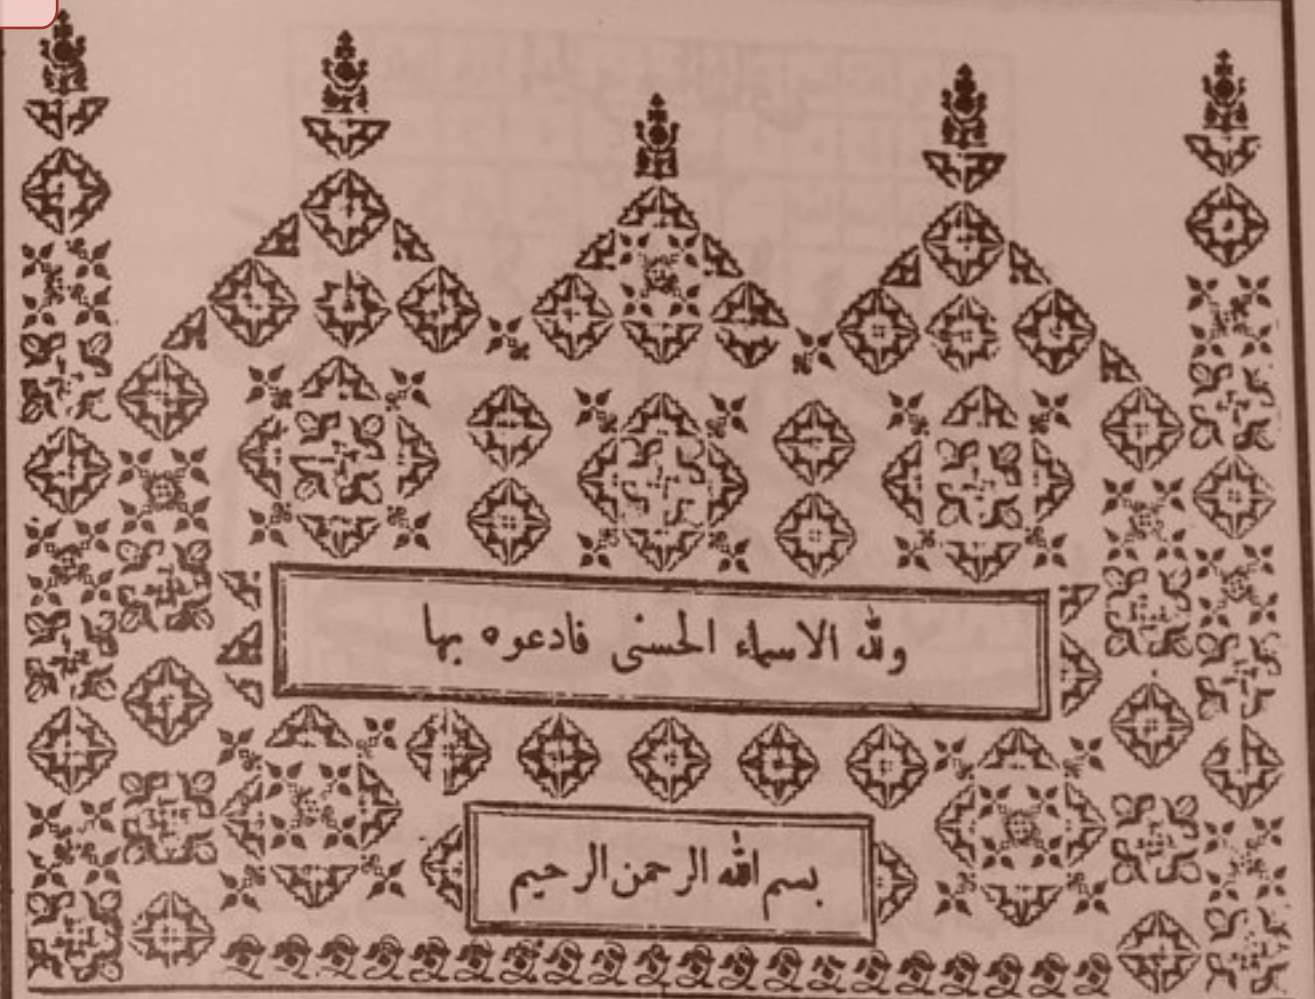 ولله الاسماء الحسنى فادعوه بها
بسم الله الرحمن الرحيم